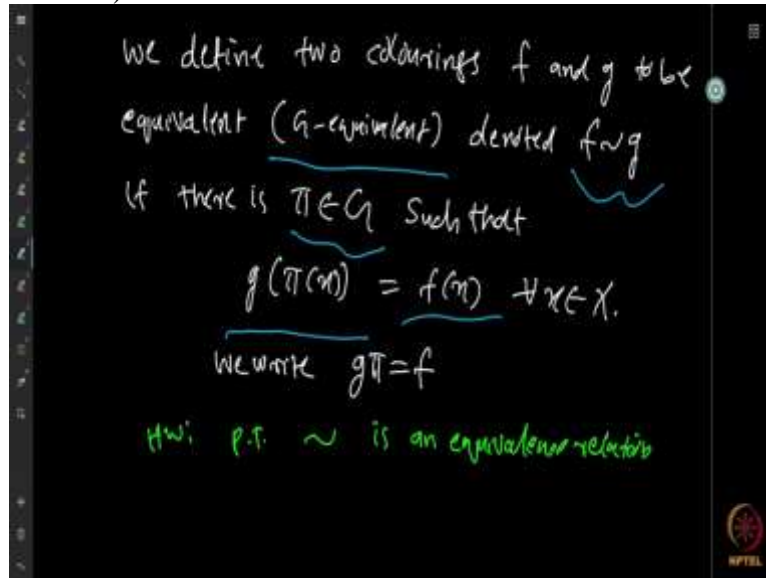 We define two colourings f and g to be
equivalent (G-equivalent) denoted f~g
if there is π∈G Such that
g(π(x)) = f(x) ∀x∈X.
We write gπ=f
HW: P.T. ~ is an equivalence relation
NPTEL